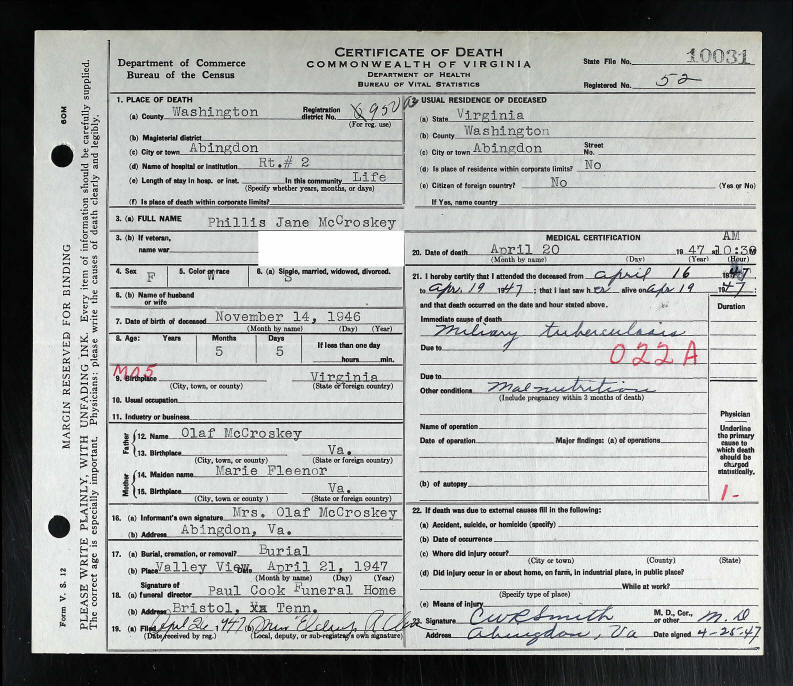 CERTIFICATE OF DEATH
COMMONWEALTH OF VIRGINIA
DEPARTMENT OF HEALTH
BUREAU OF VITAL STATISTICS
Department of Commerce
Bureau of the Census
State File No. 10031
Registered No. 52
60M
MARGIN RESERVED FOR BINDING
PLEASE WRITE PLAINLY, WITH UNFADING INK. Every item of information should be carefully supplied.
The correct age is especially important. Physicians: please write the causes of death clearly and legibly.
Form V. S. 12
1. PLACE OF DEATH
(a) County Washington
Registration district No. 950
(For reg. use)
(b) Magisterial district
(c) City or town Abingdon
(d) Name of hospital or institution Rt.# 2
(e) Length of stay in hosp. or inst. In this community Life
(Specify whether years, months, or days)
(f) Is place of death within corporate limits?
USUAL RESIDENCE OF DECEASED
(a) State Virginia
(b) County Washington
(c) City or town Abingdon Street No.
(d) Is place of residence within corporate limits? No
(e) Citizen of foreign country? No (Yes or No)
If Yes, name country
3. (a) FULL NAME Phillis Jane McCroskey
3. (b) If veteran, name war
4. Sex F
5. Color or race W
6. (a) Single, married, widowed, divorced. S
6. (b) Name of husband or wife
7. Date of birth of deceased November 14, 1946
(Month by name) (Day) (Year)
8. Age: Years Months 5 Days 5 If less than one day hours min.
9. Birthplace Virginia
(City, town, or county) (State or foreign country)
10. Usual occupation
11. Industry or business
Father
12. Name Olaf McCroskey
13. Birthplace Va.
(City, town, or county) (State or foreign country)
Mother
14. Maiden name Marie Fleenor
15. Birthplace Va.
(City, town, or county ) (State or foreign country)
16. (a) Informant's own signature Mrs. Olaf McCroskey
(b) Address Abingdon, Va.
17. (a) Burial, cremation, or removal? Burial
(b) Place Valley View Date April 21, 1947
(Month by name) (Day) (Year)
18. (a) Signature of funeral director Paul Cook Funeral Home
(b) Address Bristol, Tenn.
19. (a) Filed Apl 26 1947 (b) Miss
(Date received by reg.) (Local, deputy, or sub-registrar's own signature)
MEDICAL CERTIFICATION
20. Date of death April 20 1947 AM 10:30
(Month by name) (Day) (Year) (Hour)
21. I hereby certify that I attended the deceased from April 16 1947
to Apr. 19 1947; that I last saw her alive on Apr 19 1947;
and that death occurred on the date and hour stated above.
Duration
Immediate cause of death
Miliary tuberculosis
Due to
022A
Due to
Other conditions Malnutrition
(Include pregnancy within 3 months of death)
Name of operation
Date of operation Major findings: (a) of operations
(b) of autopsy
Physician
Underline the primary cause to which death should be charged statistically.
1-
22. If death was due to external causes fill in the following:
(a) Accident, suicide, or homicide (specify)
(b) Date of occurrence
(c) Where did injury occur?
(City or town) (County) (State)
(d) Did injury occur in or about home, on farm, in industrial place, in public place?
While at work?
(Specify type of place)
(e) Means of injury
23. Signature CWR Smith M. D., Cor., or other M. D
Address Abingdon, Va Date signed 4-25-47